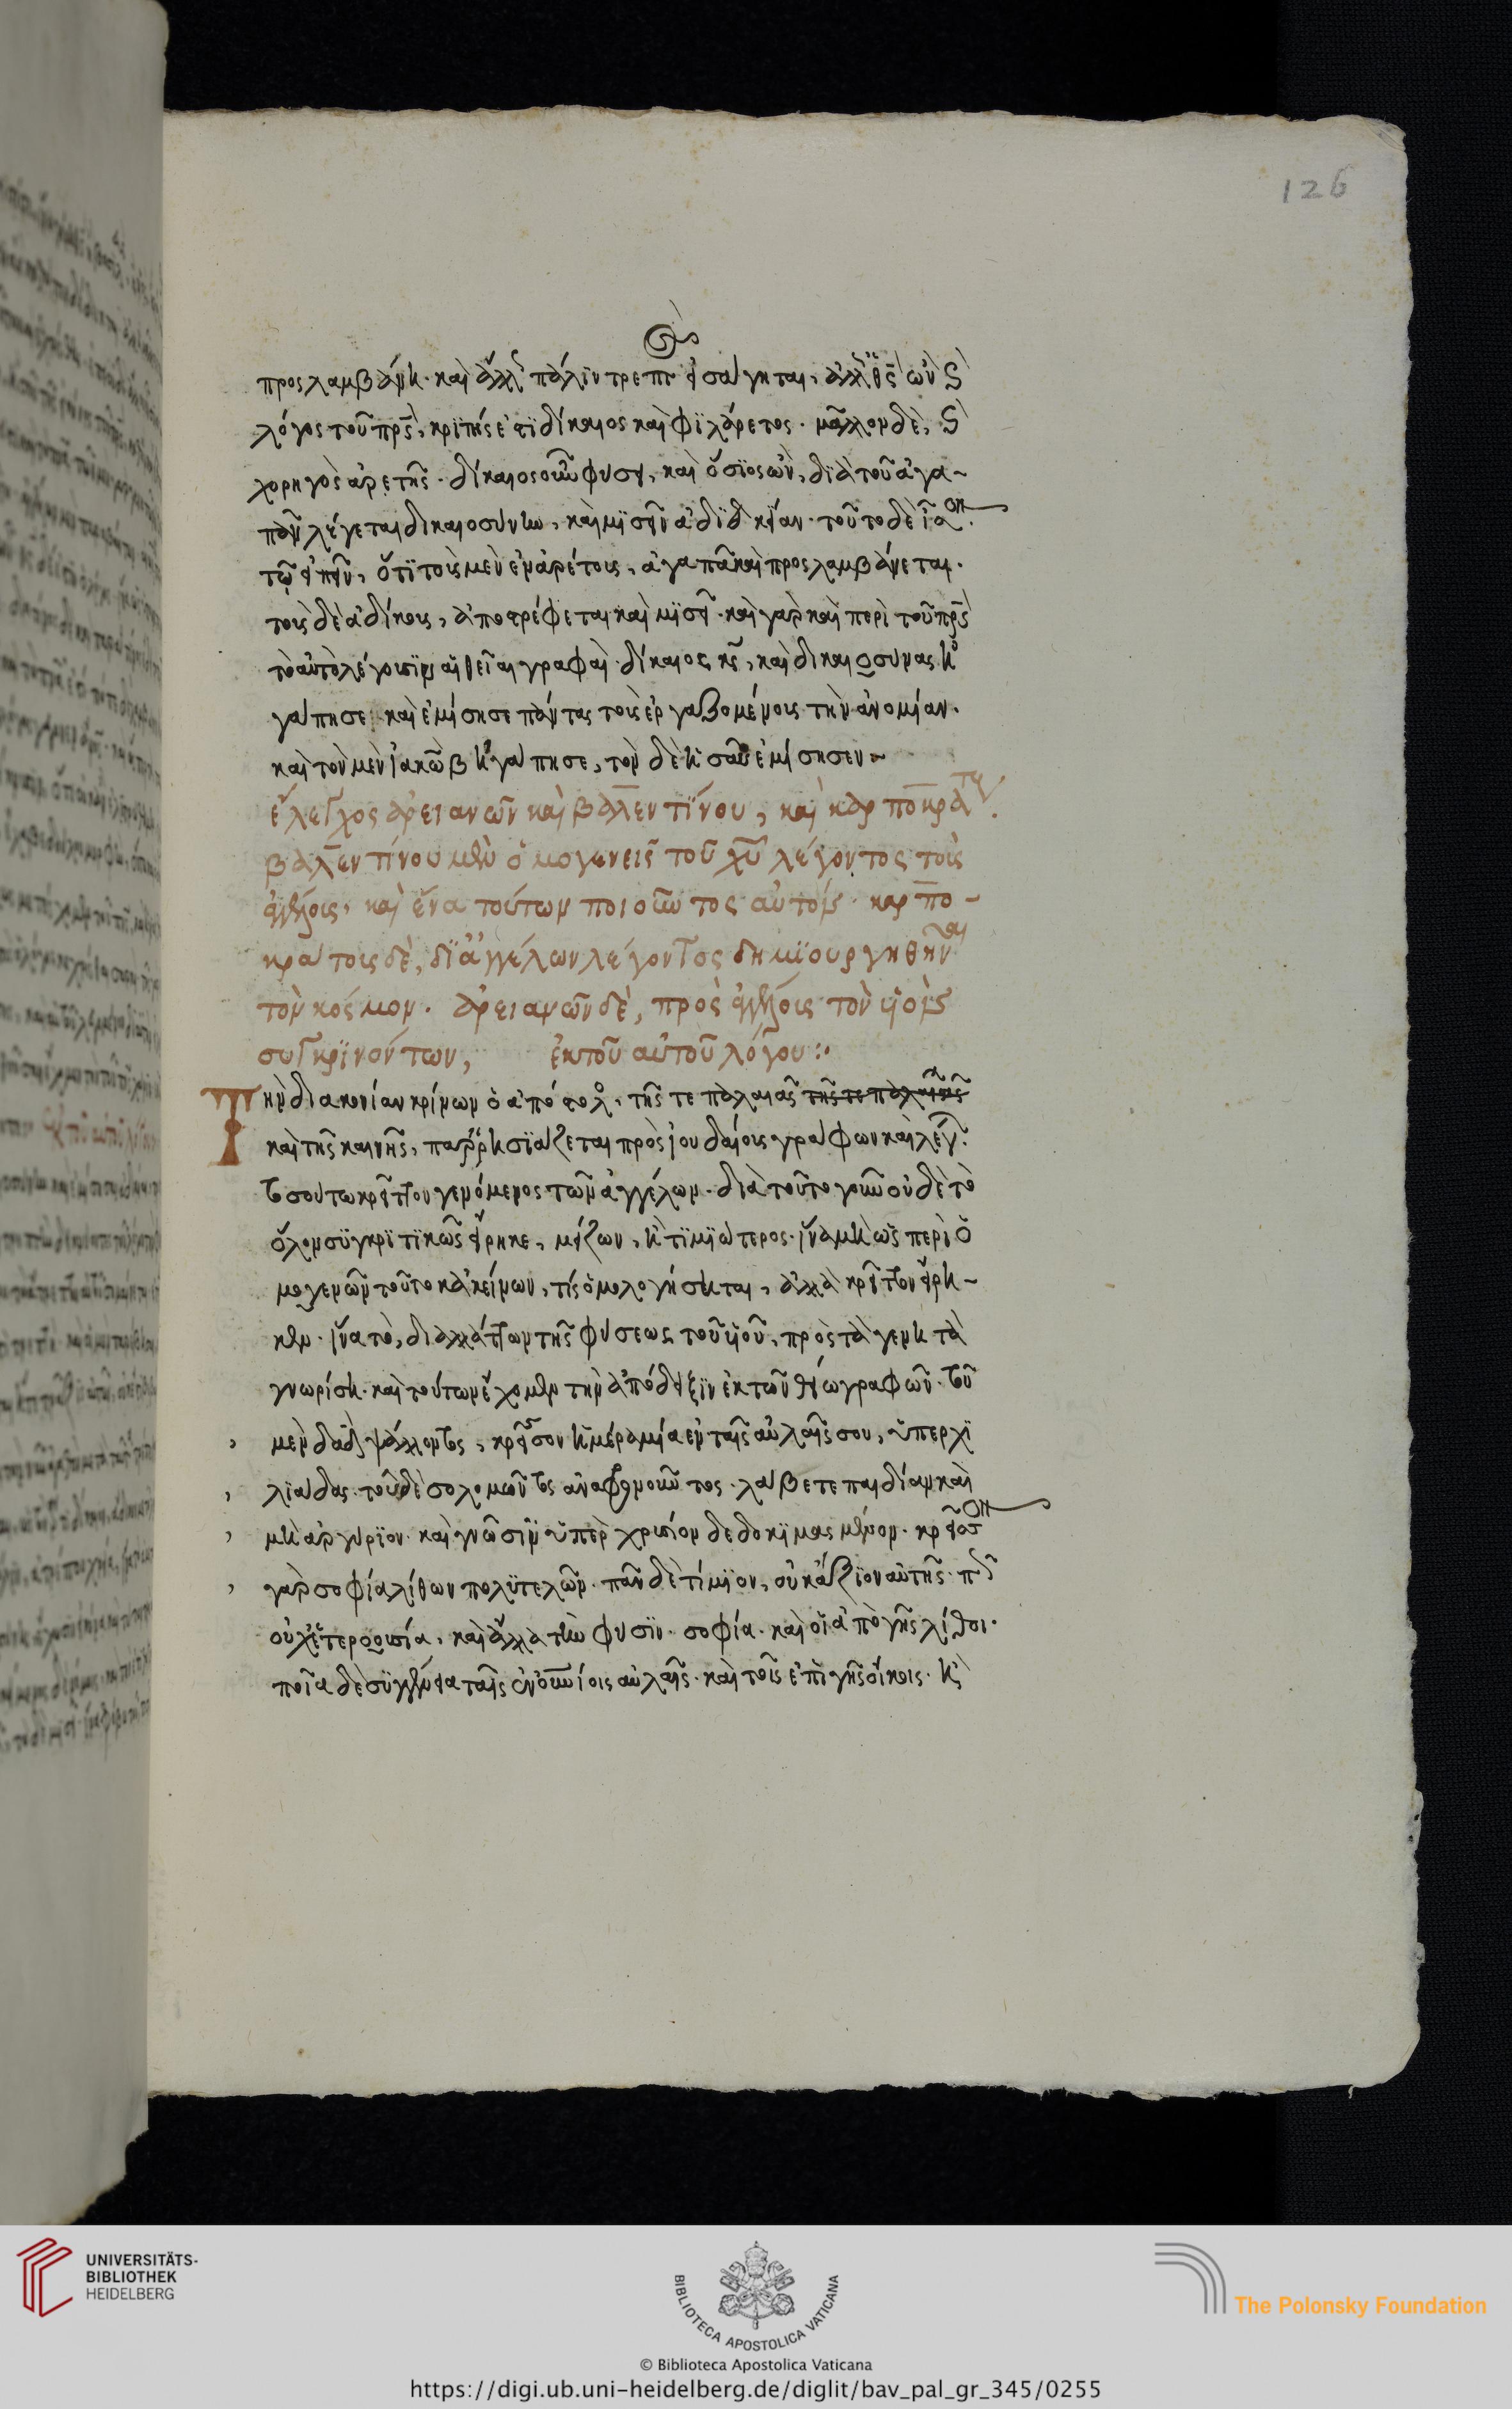 126
προσλαμβάνη· καὶ ἀλλ' πάλιν τρεπτ εἰσάγηται, ἀλλ' ὡς θς ὢν κ
λόγος τοῦ πρς, κριτής ἐστι δίκαιος καὶ φιλάρετος· μᾶλλον δὲ, κ
χορηγὸς ἀρετῆς· δίκαιος οὖν φύσει, καὶ ὅσιος ὢν, διὰ τοῦ ἀγα-
πᾶν λέγεται δικαιοσύνην, καὶ μισεῖν ἀδικίαν· τοῦτο δὲ ἴσον
τῷ εἰπεῖν, ὅτι τοὺς μὲν ἐναρέτους, ἀγαπᾶ καὶ προσλαμβάνεται·
τοὺς δὲ ἀδίκους, ἀποστρέφεται καὶ μισεῖ· καὶ γὰρ καὶ περὶ τοῦ πρς
τὸ αὐτὸ λέγουσιν αἱ θεῖαι γραφαί· δίκαιος κς, καὶ δικαιοσύνας ἠ
γάπησε· καὶ ἐμίσησε πάντας τοὺς ἐργαζομένους τὴν ἀνομίαν·
καὶ τὸν μὲν ἰακὼβ ἠγάπησε, τὸν δὲ ἠσαῦ ἐμίσησεν
ἔλεγχος ἀρειανῶν καὶ βαλεντίνου, καὶ καρποκρατ
βαλεντίνου μὲν ὁμογενεῖς τοῦ χυ λέγοντος τοὺς
ἀγγέλους, καὶ ἕνα τούτων ποιοῦντος αὐτόν· καρπο-
κράτους δὲ, δι' ἀγγέλων λέγοντος δημιουργηθῆναι
τὸν κόσμον· ἀρειανῶν δὲ, πρὸς ἀγγέλους τὸν υἱὸν
συγκρινόντων, ἐκ τοῦ αὐτοῦ λόγου:·
Τὴν διακονίαν κρίνων ὁ ἀπόστολ, τῆς τε παλαιᾶς τῆς τε παλαιᾶς
καὶ τῆς καινῆς, παρρησιάζεται πρὸς ἰουδαίους γράφων καὶ λέγ
τοσούτω κρείττου γενόμενος τῶν ἀγγέλων· διὰ τοῦτο γοῦν οὐδὲ τὸ
ὅλον συγκριτικῶς εἴρηκε, μείζων, ἢ τιμιώτερος· ἵνα μὴ ὡς περὶ ὁ
μογενῶν τοῦτο κἀκείνων, τις ὁμολογήσηται, ἀλλὰ κρείττων εἴρη-
κεν· ἵνα τὸ, διαλλάττων τῆς φύσεως τοῦ υἱοῦ, πρὸς τὰ γενητὰ
γνωρίση· καὶ τούτων ἔχομεν τὴν ἀπόδειξιν ἐκ τῶν θείων γραφῶν· τοῦ
μὲν δαδ ψάλλοντος, κρεῖσσον ἡμέρα μία ἐν ταῖς αὐλαῖς σου, ὑπὲρ χι
λιάδας· τοῦ δὲ σολομῶντος ἀναφωνοῦντος· λάβετε παιδείαν καὶ
μὴ ἀργύριον· καὶ γνῶσιν ὑπὲρ χρυσίον δεδοκιμασμένον· κρεῖσσον
γὰρ σοφία λίθων πολυτελῶν· πᾶν δὲ τίμιον, οὐκ ἄξιον αὐτῆς· πῶς
οὐχ ἑτεροούσια, καὶ ἄλλα τὴν φύσιν· σοφία· καὶ οἱ ἀπὸ γῆς λίθοι·
ποία δὲ συγγένεια ταῖς ἐν οὐνίοις αὐλαῖς· καὶ τοῖς ἐπὶ γῆς οἴκοις· ἢ
UNIVERSITÄTS-
BIBLIOTHEK
HEIDELBERG
BIBLIOTECA APOSTOLICA VATICANA
The Polonsky Foundation
© Biblioteca Apostolica Vaticana
https://digi.ub.uni-heidelberg.de/diglit/bav_pal_gr_345/0255